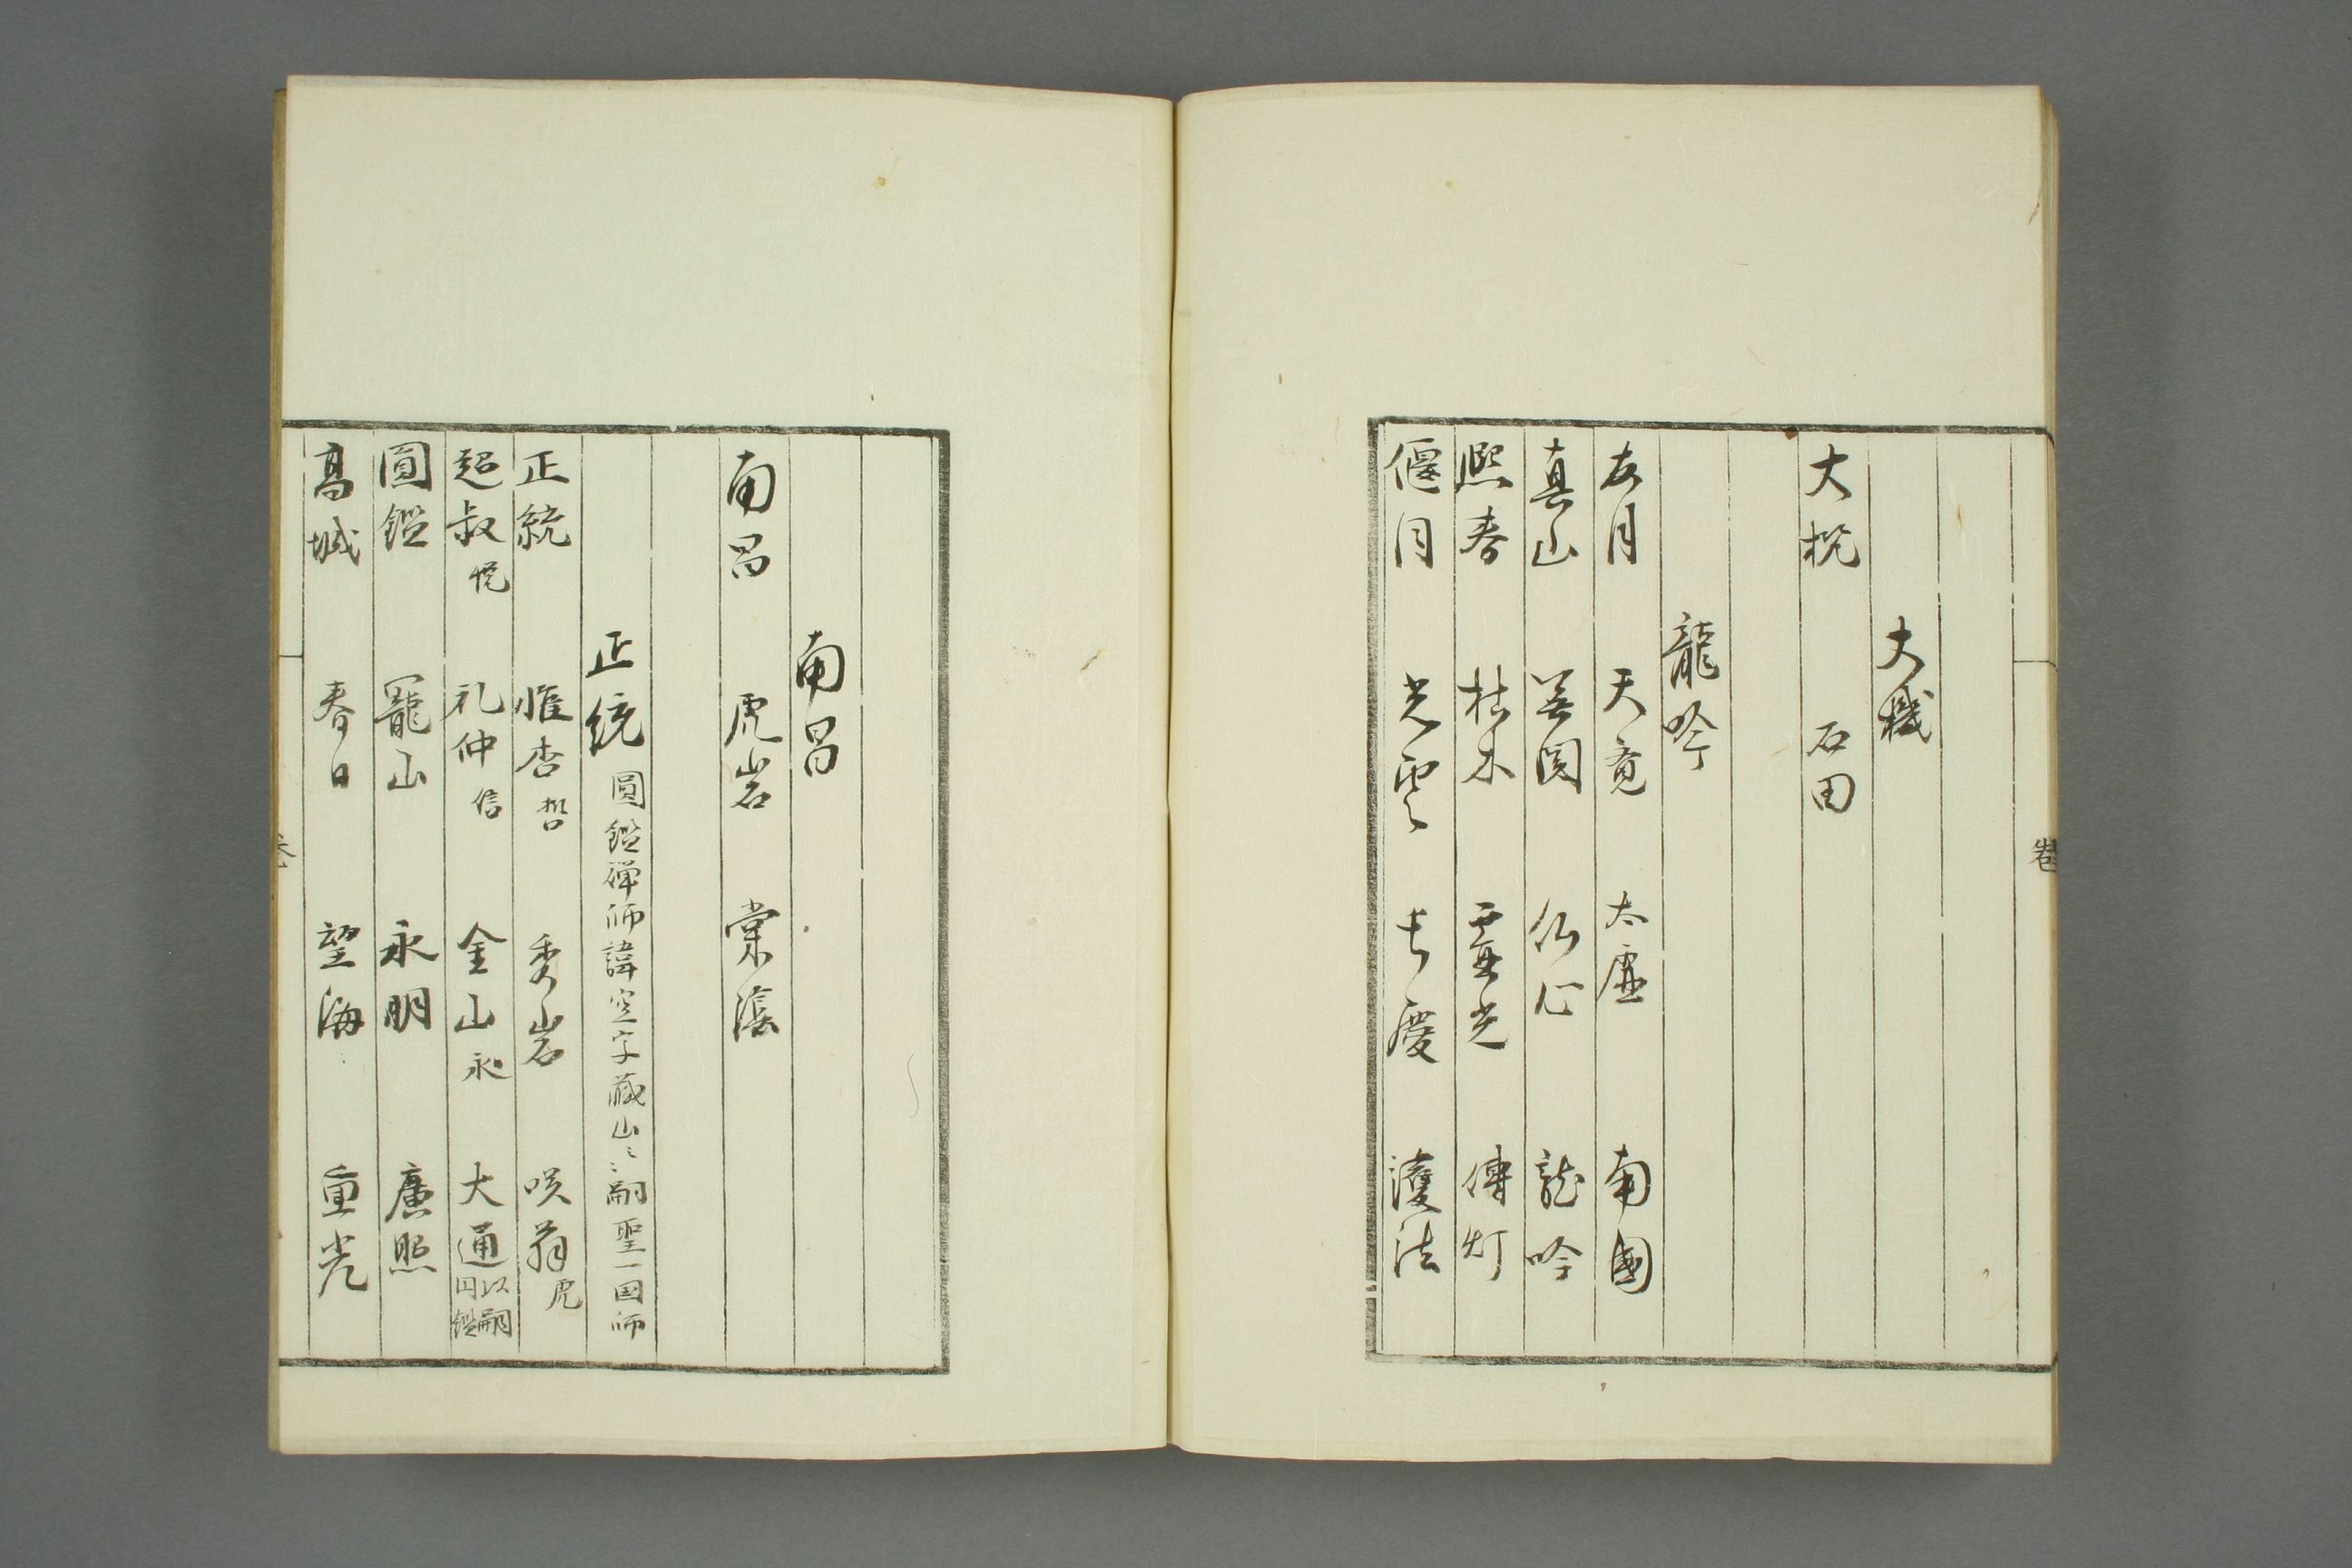 大機
大枕 石田
龍吟
友月 天竟 太虚 南國
真山 無関 仏心 龍吟
熈春 枯木 霊光 傳灯
偃月 光雲 長慶 護法
卷
南昌
南昌 虎岩 棠蔭
正統 圓鑑禅師諱空字蔵山〻嗣聖一国師
正統 惟杏哲 秀岩 咲翁虎
超叔悦 礼仲信 金山永 大通以嗣円鑑
圓鑑 龍山 永明 廣照
高城 春日 望海 重光